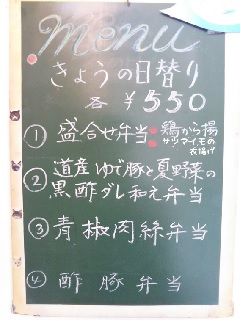 menu
きょうの日替り
各 ¥550
① 盛合せ弁当 ・鶏から揚
サツマイモの
天揚げ
② 道産ゆで豚と夏野菜の
黒酢ダレ和え弁当
③ 青椒肉絲弁当
④ 酢豚弁当